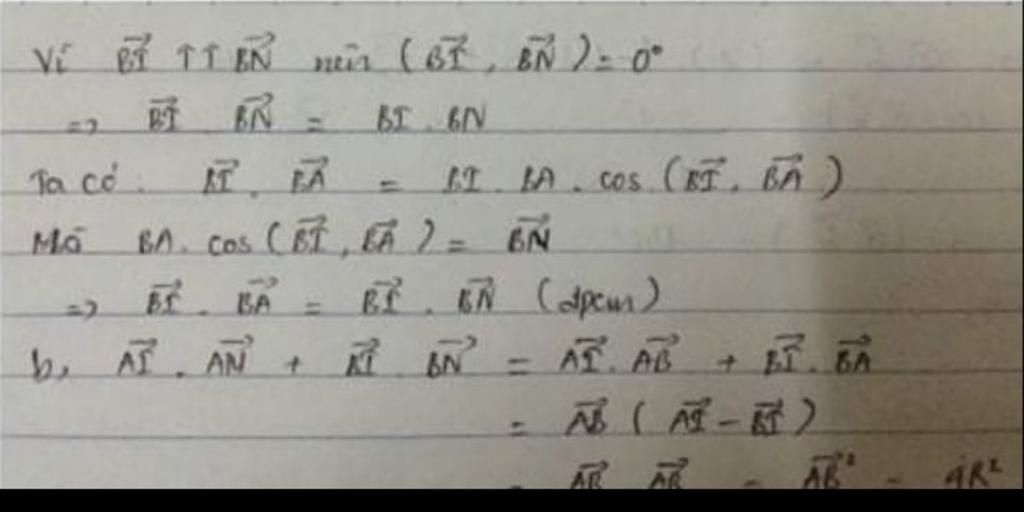 Vì \overrightarrow{BI} ↑↑ \overrightarrow{BN} nên (\overrightarrow{BI}, \overrightarrow{BN}) = 0°
=> \overrightarrow{BI} \overrightarrow{BN} = BI . BN
Ta có: \overrightarrow{BI} . \overrightarrow{BA} = BI . BA . cos (\overrightarrow{BI}. \overrightarrow{BA})
Mà BA. cos (\overrightarrow{BI}, \overrightarrow{BA}) = \overrightarrow{BN}
=> \overrightarrow{BI} . \overrightarrow{BA} = \overrightarrow{BI} . \overrightarrow{BN} (đpcm)
b, \overrightarrow{AI} . \overrightarrow{AN} + \overrightarrow{BI} \overrightarrow{BN} = \overrightarrow{AI}. \overrightarrow{AB} + \overrightarrow{BI}. \overrightarrow{BA}
= \overrightarrow{AB} (\overrightarrow{AI} - \overrightarrow{BI})
= \overrightarrow{AB} \overrightarrow{AB} = \overrightarrow{AB}² = 4R²